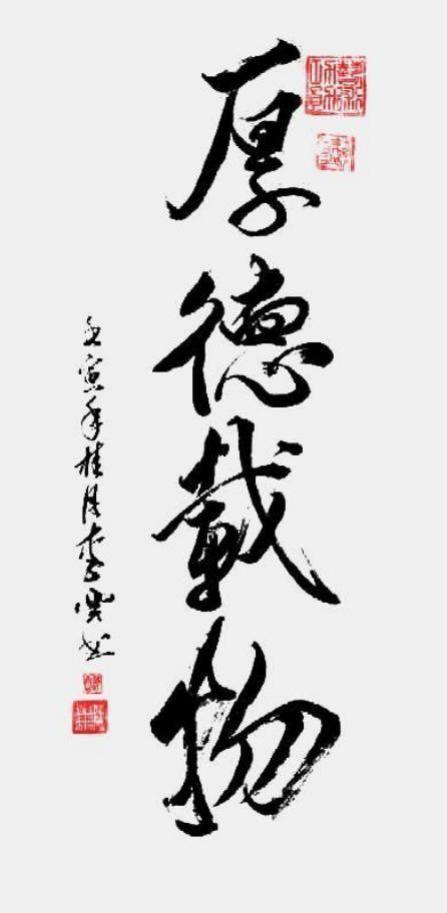 厚德載物
壬寅年桂月李雙书